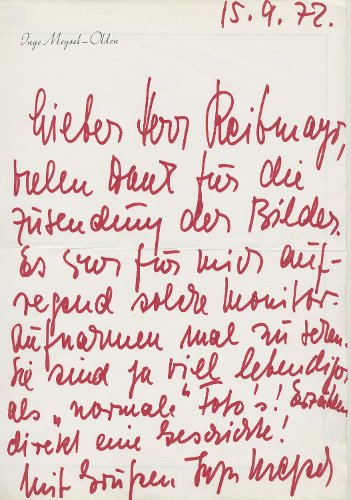 15.9.72.
Inge Meysel-Olden
Lieber Herr Reibmayr,
vielen Dank für die
Zusendung der Bilder.
Es war für mich auf-
regend solche Monitor-
aufnahmen mal zu sehen.
Sie sind ja viel lebendiger
als „normale" Foto's! Erzählen
direkt eine Geschichte!
Mit Grüßen Inge Meysel